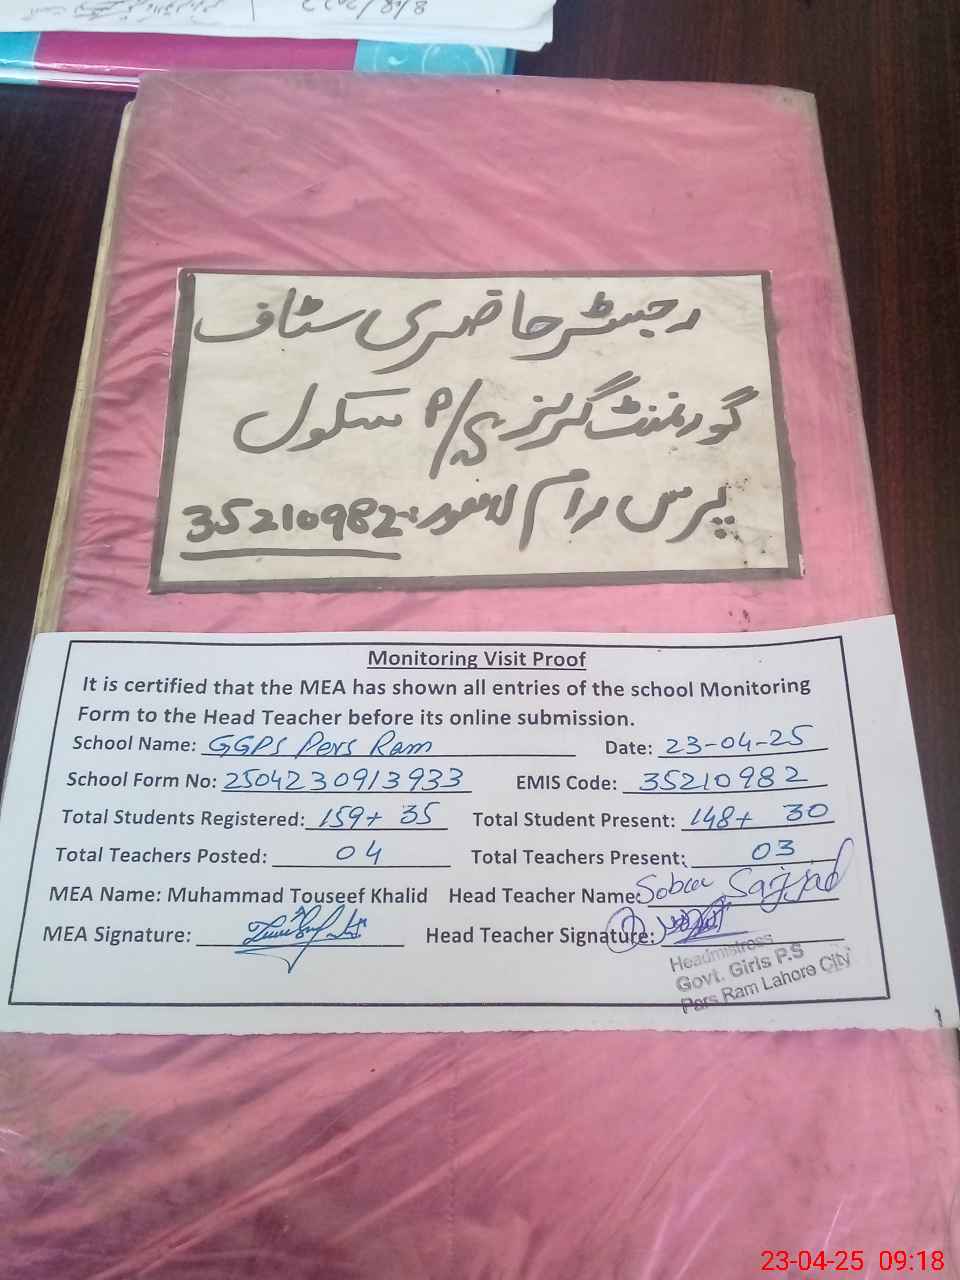 8/8/2022
رجسٹر حاضری سٹاف
گورنمنٹ گرلز P/S سکول
پرس رام لاہور 35210982
Monitoring Visit Proof
It is certified that the MEA has shown all entries of the school Monitoring
Form to the Head Teacher before its online submission.
School Name: GGPS Pers Ram Date: 23-04-25
School Form No: 2504230913933 EMIS Code: 35210982
Total Students Registered: 159+ 35 Total Student Present: 148+ 30
Total Teachers Posted: 04 Total Teachers Present: 03
MEA Name: Muhammad Touseef Khalid Head Teacher Name: Sajjad
MEA Signature: Head Teacher Signature:
Headmistress
Govt. Girls P.S
Pers Ram Lahore City
23-04-25 09:18